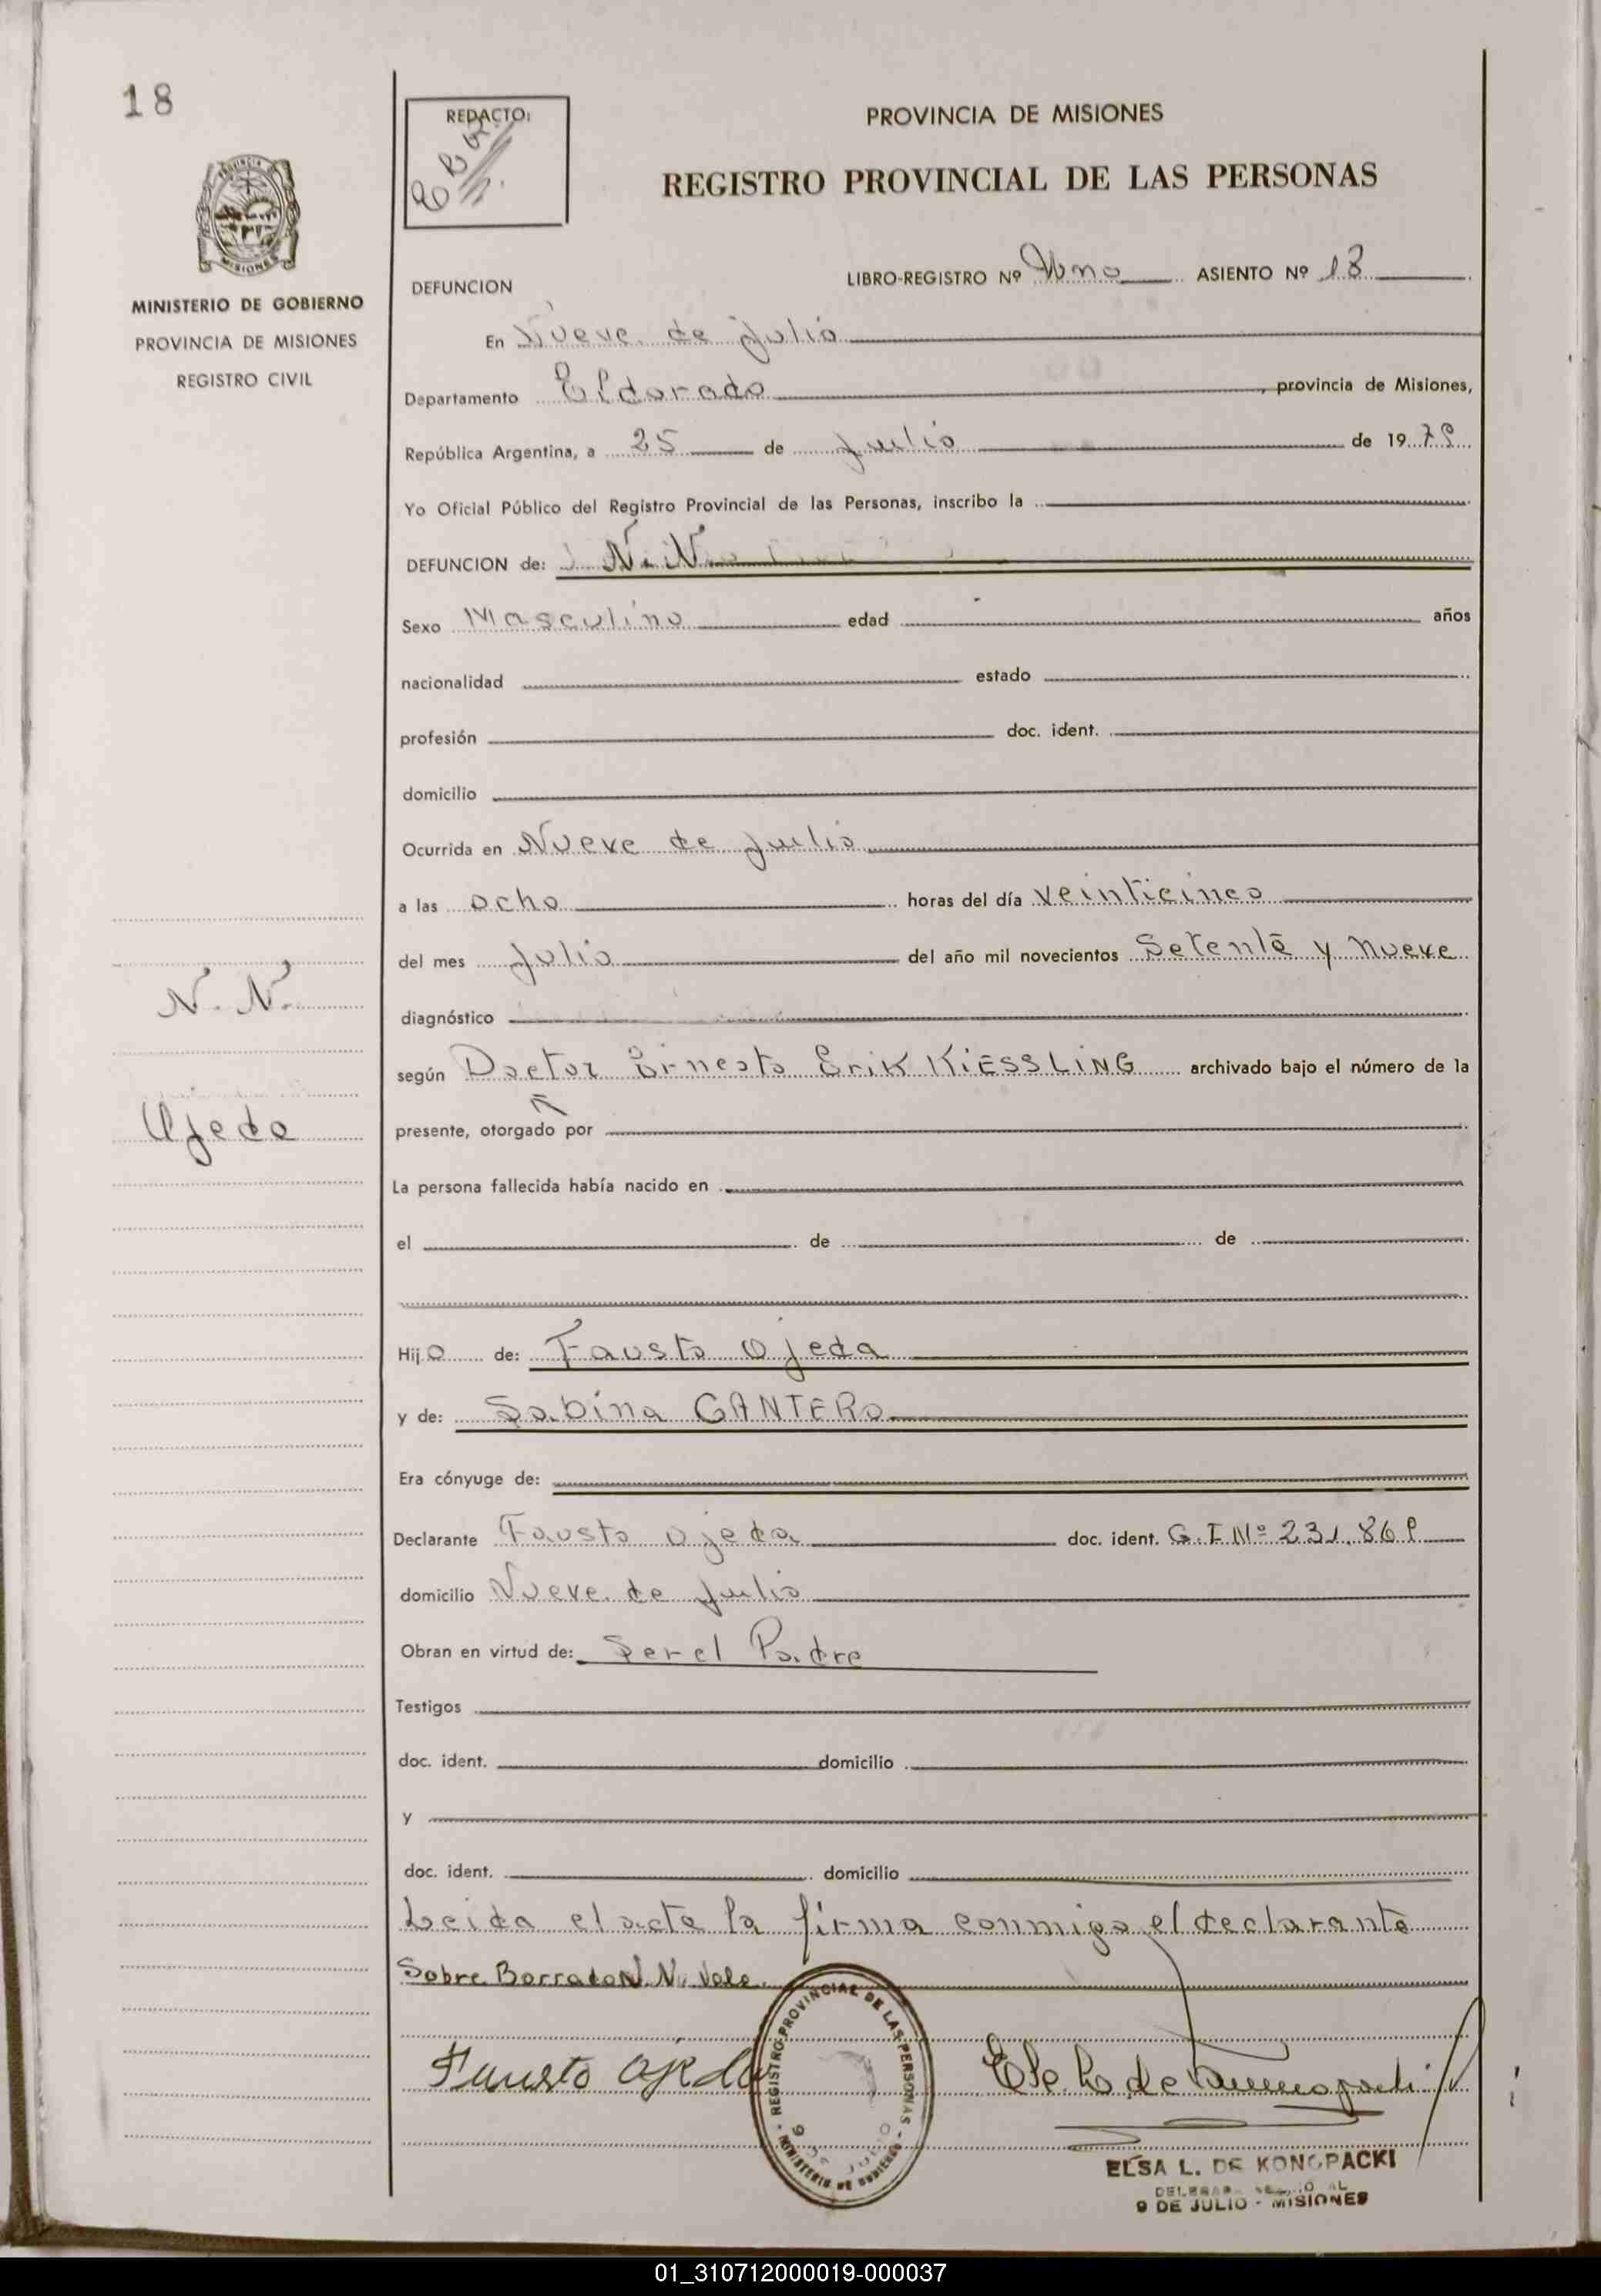 18
REDACTO:
PROVINCIA DE MISIONES
REGISTRO PROVINCIAL DE LAS PERSONAS
PROVINCIA
MISIONES
MINISTERIO DE GOBIERNO
PROVINCIA DE MISIONES
REGISTRO CIVIL
DEFUNCION
LIBRO-REGISTRO Nº Uno ASIENTO Nº 18
En Nueve de Julio
Departamento Eldorado, provincia de Misiones,
República Argentina, a 25 de Julio de 1979
Yo Oficial Público del Registro Provincial de las Personas, inscribo la
DEFUNCION de: N. N.
Sexo Masculino edad años
nacionalidad estado
profesión doc. ident.
domicilio
Ocurrida en Nueve de Julio
a las ocho horas del día veinticinco
del mes Julio del año mil novecientos Setenta y nueve
diagnóstico
según Doctor Ernesto Erik KiESSLiNG archivado bajo el número de la
presente, otorgado por
La persona fallecida había nacido en
el de de
Hijo de: Fausto Ojeda
y de: Sabina CANTERO
Era cónyuge de:
Declarante Fausto Ojeda doc. ident. C.I Nº 231.869
domicilio Nueve de Julio
Obran en virtud de: Ser el Padre
Testigos
doc. ident. domicilio
y
doc. ident. domicilio
Leida el acta la firma conmigo el declarante
Sobre Borrado N. N. Vale
N. N.
Ojeda
Fausto Ojeda
REGISTRO PROVINCIAL DE LAS PERSONAS
MINISTERIO DE GOBIERNO
9 DE JULIO
ELSA L. DE KONOPACKI
9 DE JULIO - MISIONES
01_310712000019-000037